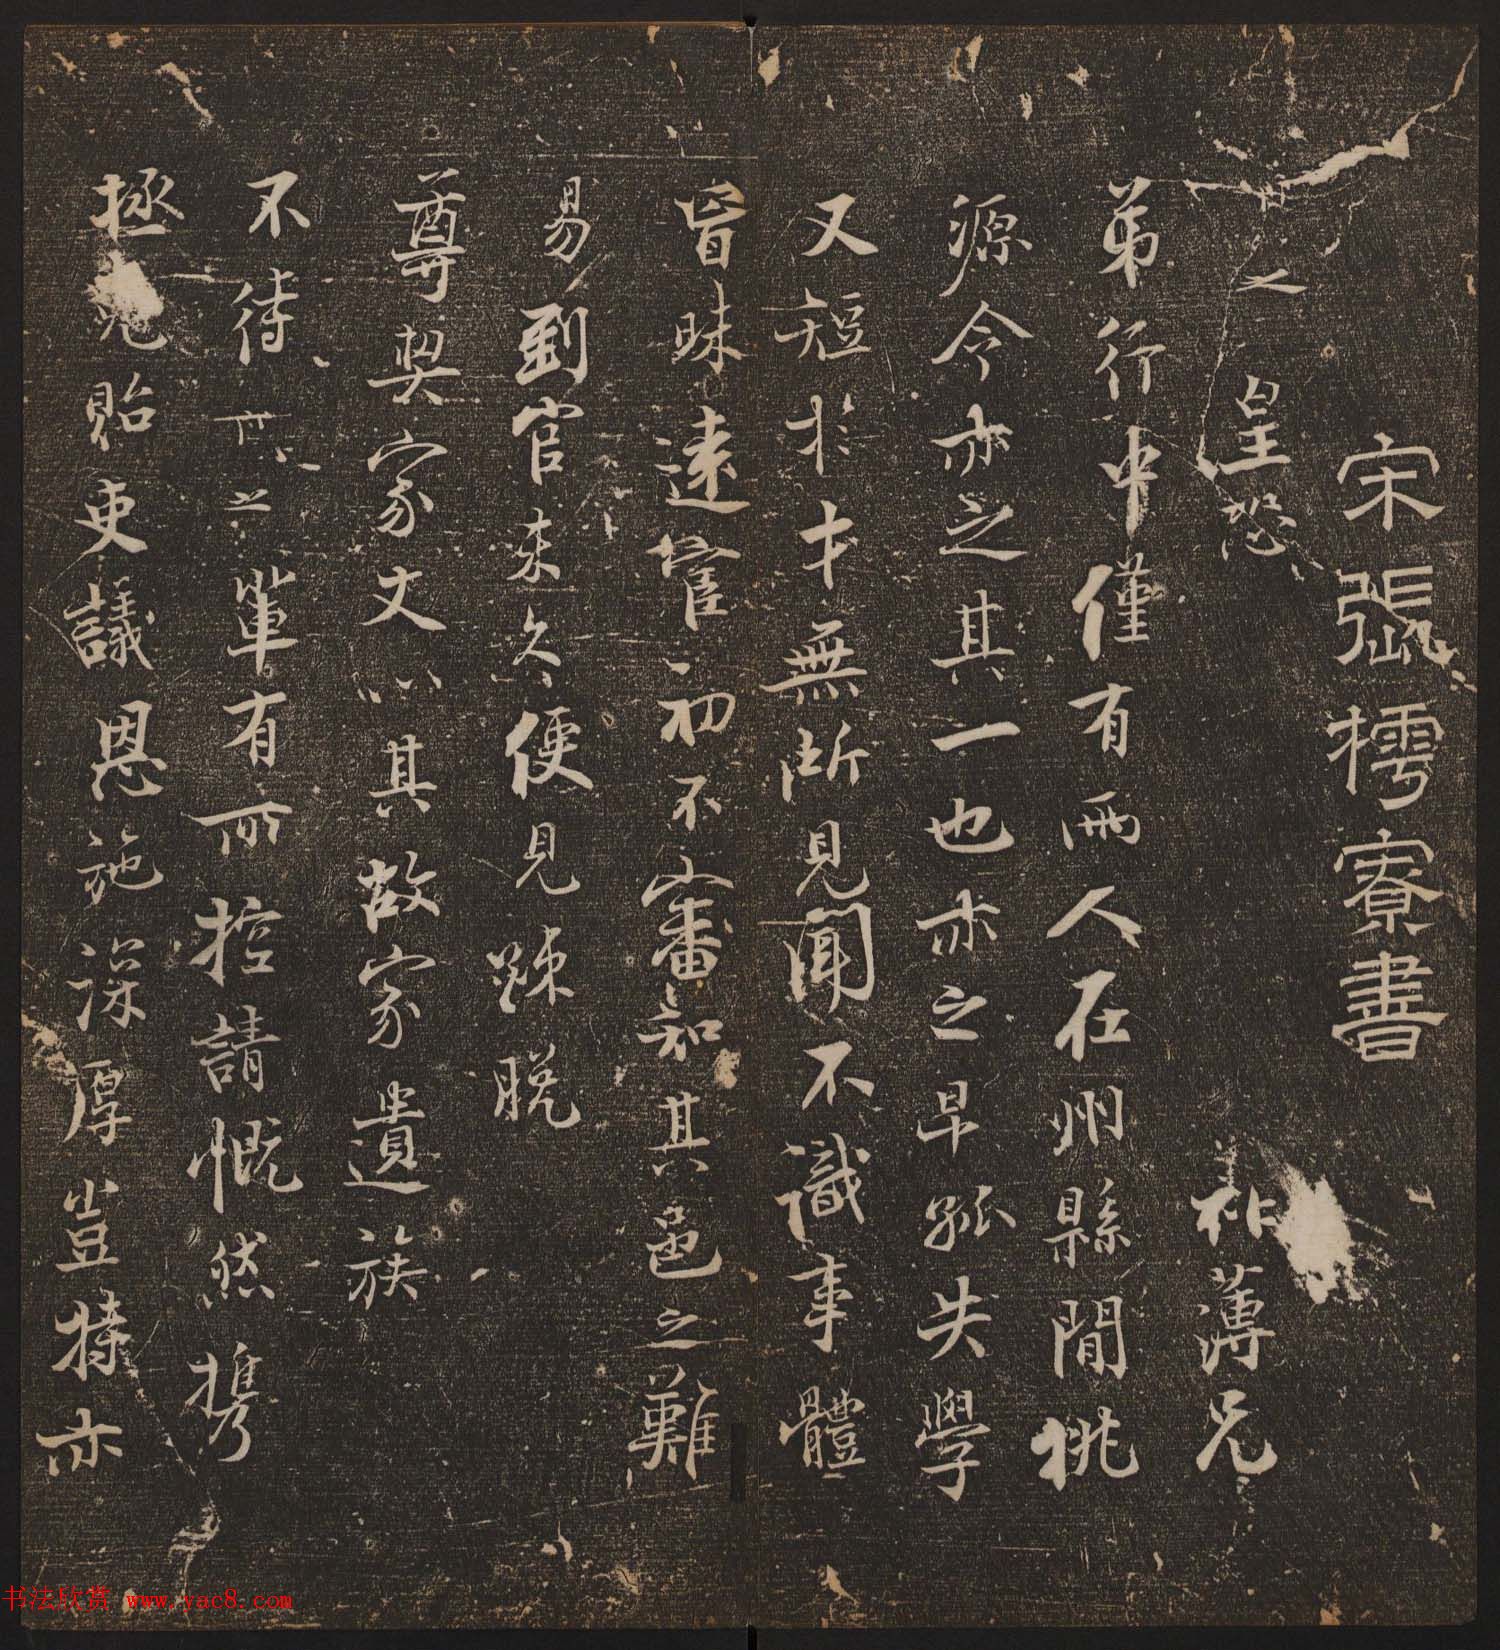 宋張樗寮書
之皇恐 袝薄兄
弟行中僅有兩人在州縣間桃
源令亦之其一也亦之早孤失學
又短於才無所見聞不識事體
冒昧遠官初不審知其邑之難
易到官未久便見疎脫
尊契家丈以其故家遺族
不待之輩有所控請慨然攜
拯免貽吏議恩施深厚豈特亦
书法欣赏 www.yac8.com